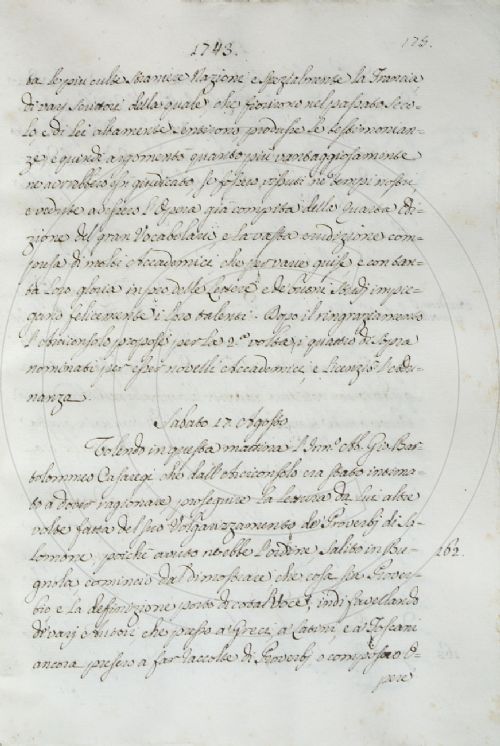 1743.
175.
ta le più culte Straniere Nazioni e spezialmente la Francia
di varj Scrittori della quale che fiorirono nel passato Seco-
lo e di lei altamente sentirono produsse le testimonian-
ze, e quindi argomentò quanto più vantaggiosamente
ne avrebbero giudicato se fossero vissuti ne' tempi nostri
e vedute avessero l'Opera già compita della Quarta Edi-
zione del gran Vocabolario e la vasta erudizione com-
presa di molti Accademici che per varie guise e con tan-
ta loro gloria in prò delle Lettere e de' buoni Studj impie-
gano felicemente i loro talenti. Dopo il ringraziamento
l'Arciconsolo propose per la 2.ª volta i quattro di sopra
nominati per esser novelli Accademici, e licenziò l'Adu-
nanza.
Sabato 17. Agosto
Volendo in questa mattina l' Ab. Gio. Bar-
tolommeo Casaregi che dall'Arciconsolo era stato invita-
to a dover ragionare, proseguire la Lettura da lui altre
volte fatta del suo Volgarizzamento de' Proverbj di Sa-
lomone, poichè avuto n'ebbe l'ordine, Salito in Bu-
162.
gnola cominciò da dimostrare che cosa sia Prover-
bio e la deffinizione portò di cotal Voce, indi favellando
di varj Autori che presso a' Greci, a' Latini, e a' Toscani
ancora presero a far raccolte di Proverbj o composero O-
pere